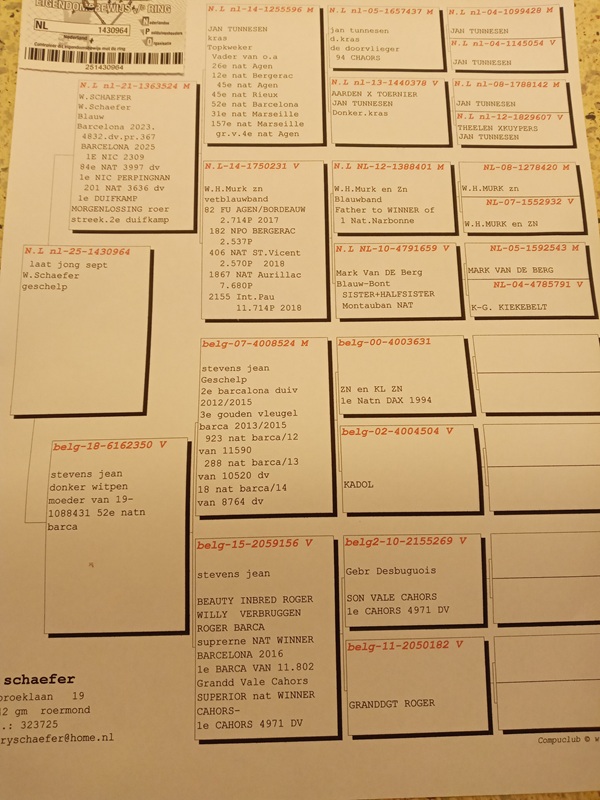 EIGENDOMSBEWIJS RING
NL 1430964
Nederland
251430964
N.L nl-21-1363524 M
W.SCHAEFER
W.Schaefer
Blauw
Barcelona 2023.
4832.dv.pr.367
BARCELONA 2025
1E NIC 2309
84e NAT 3997 dv
1e NIC PERPINGNAN
201 NAT 3636 dv
1e DUIFKAMP
MORGENLOSSING roer
streek.2e duifkamp
N.L nl-25-1430964
laat jong sept
W.Schaefer
geschelp
belg-18-6162350 V
stevens jean
donker witpen
moeder van 19-
1088431 52e natn
barca
N.L nl-14-1255596 M
JAN TUNNESEN
kras
Topkweker
Vader van o.a
26e nat Agen
12e nat Bergerac
45e nat Agen
45e nat Rieux
52e nat Barcelona
31e nat Marseille
157e nat Marseille
gr.v.4e nat Agen
N.L-14-1750231 V
W.H.Murk zn
vetblauwband
82 FU AGEN/BORDEAUW
2.714P 2017
182 NPO BERGERAC
2.537P
406 NAT ST.Vicent
2.570P 2018
1867 NAT Aurillac
7.680P
2155 Int.Pau
11.714P 2018
belg-07-4008524 M
stevens jean
Geschelp
2e barcalona duiv
2012/2015
3e gouden vleugel
barca 2013/2015
923 nat barca/12
van 11590
288 nat barca/13
van 10520 dv
18 nat barca/14
van 8764 dv
belg-15-2059156 V
stevens jean
BEAUTY INBRED ROGER
WILLY VERBRUGGEN
ROGER BARCA
suprerne NAT WINNER
BARCELONA 2016
1e BARCA VAN 11.802
Grandd Vale Cahors
SUPERIOR nat WINNER
CAHORS-
1e CAHORS 4971 DV
N.L nl-05-1657437 M
jan tunnesen
d.kras
de doorvlieger
94 CHAORS
N.L nl-13-1440378 V
AARDEN X TOERNIER
JAN TUNNESEN
Donker.kras
N.L NL-12-1388401 M
W.H.Murk en Zn
Blauwband
Father to WINNER of
1 Nat.Narbonne
N.L NL-10-4791659 V
Mark Van DE Berg
Blauw-Bont
SISTER+HALFSISTER
Montauban NAT
belg-00-4003631
ZN en KL ZN
1e Natn DAX 1994
belg-02-4004504 V
KADOL
belg2-10-2155269 V
Gebr Desbuguois
SON VALE CAHORS
1e CAHORS 4971 DV
belg-11-2050182 V
GRANDDGT ROGER
N.L nl-04-1099428 M
JAN TUNNESEN
N.L nl-04-1145054 V
JAN TUNNESEN
N.L nl-08-1788142 M
JAN TUNNESEN
N.L nl-12-1829607 V
THEELEN XKUYPERS
JAN TUNNESEN
NL-08-1278420 M
W.H.MURK zn
NL-07-1552932 V
W.H.MURK en ZN
NL-05-1592543 M
MARK VAN DE BERG
NL-04-4785791 V
K-G. KIEKEBELT
schaefer
broeklaan 19
gm roermond
.: 323725
ryschaefer@home.nl
Compuclub © w